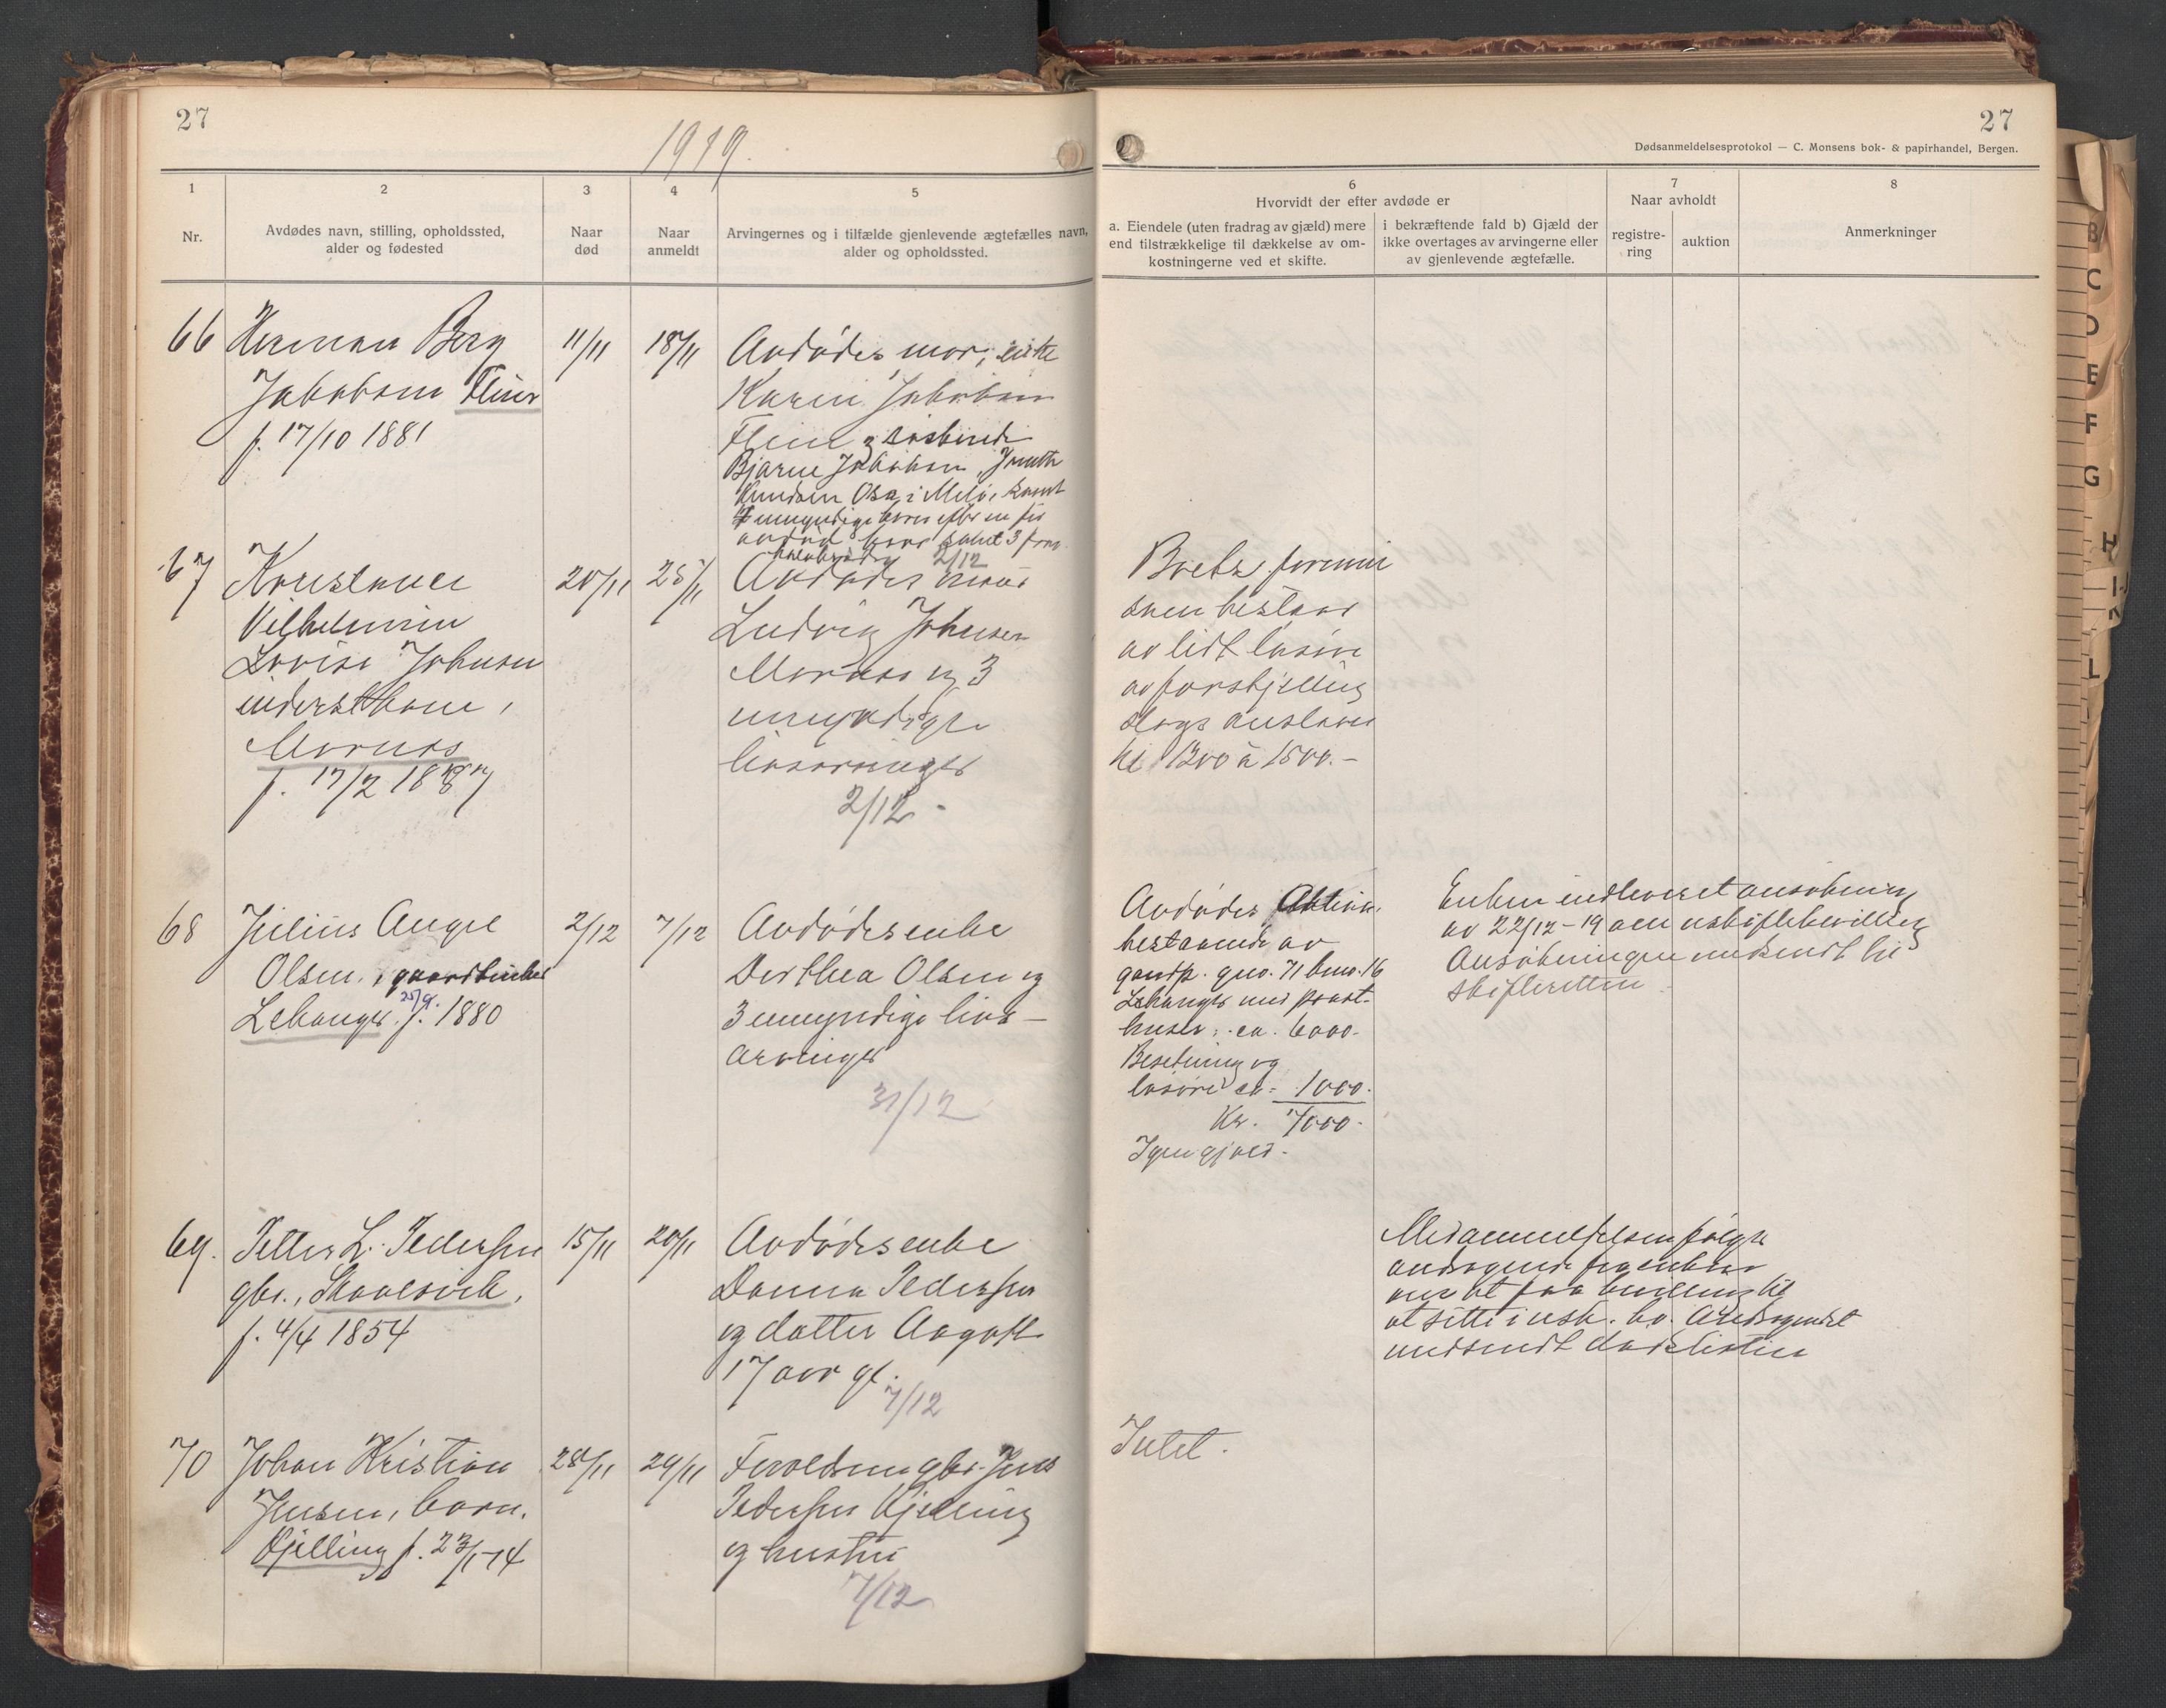 27
1919.
27
Dødsanmeldelsesprotokol — C. Monsens bok- & papirhandel, Bergen.
1
2
3
4
5
6
7
8
Nr.
Avdødes navn, stilling, opholdssted,
alder og fødested
Naar
død
Naar
anmeldt
Arvingernes og i tilfælde gjenlevende ægtefælles navn,
alder og opholdssted.
Hvorvidt der efter avdøde er
a. Eiendele (uten fradrag av gjæld) mere
end tilstrækkelige til dækkelse av om-
kostningerne ved et skifte.
i bekræftende fald b) Gjæld der
ikke overtages av arvingerne eller
av gjenlevende ægtefælle.
Naar avholdt
registre-
ring
auktion
Anmerkninger
66
Herman Berg
Jakobsen
f. 17/10 1881
11/11
18/11
Avdødes mor, enke
Karen Jakobsen
og søskende
Bjarne Jakobsen,
Knudsen Osa i Melø, samt
umyndige børn efter en før
avdød bror samt 3
halvbrødre 2/12
67
Konstance
Vilhelmine
Lovise Johnsen
inderstkone,
Mornes
f. 17/2 1887
20/11
25/11
Avdødes mand
Ludvig Johnsen
Mornes og 3
umyndige
livsarvinger
2/12 -
Boets formue
som bestaar
av lidt løsøre
av forskjellig
slags anslaaes
til 1200 à 1500.-
68
Julius Angel
Olsen, gaardbruker
Lekanger f. 25/9. 1880
2/12
7/12
Avdødes enke
Dorthea Olsen og
3 umyndige livs-
arvinger
31/12
Avdødes Aktiva
bestaaende av
gaardp. gno. 71 bno. 16
Lekanger med paast.
huser: ca. 6000.-
Besetning og
løsøre ca = 1000.-
Kr. 7000.-
Ingen gjæld.-
Enken indleveret ansøkning
av 22/12-19 om uskiftebevilling
Ansøkningen nedsendt til
skifteretten.
69.
Petter L. Pedersen
gbr., Skaalsvik,
f. 4/4 1854
15/11
20/11
Avdødes enke
Danna Pedersen
og datter Aagot
17 aar gl.
7/12
Med anmeldelsen følger
andragende fra enken
om at faa bevilling til
at sitte i usk. bo. Andragendet
nedsendt
70
Johan Kristian
Jensen, barn,
Kjelling f. 23/1-14
28/11
29/11
Forældrene gbr. Jens
Pedersen Kjelling
og hustru
7/12
Intet.
B
C
D
E
F
G
H
L